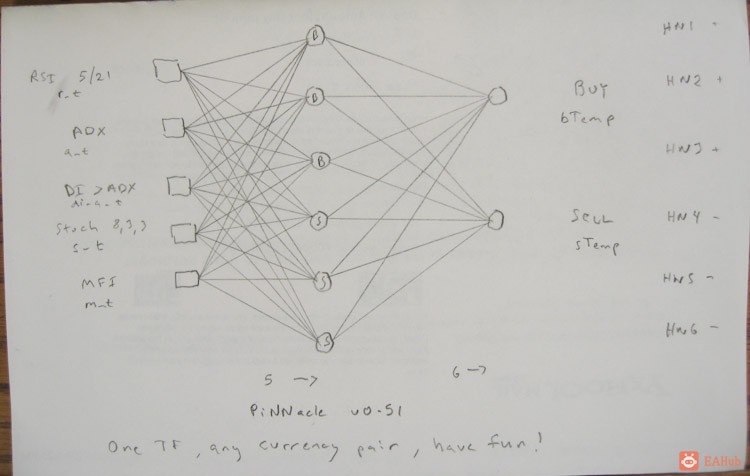 RSI 5/21
r_t
ADX
a_t
DI > ADX
di_a_t
Stoch 8,3,3
s_t
MFI
m_t
B
B
B
S
S
S
BUY
bTemp
SELL
sTemp
HN1 -
HN2 +
HN3 +
HN4 -
HN5 -
HN6 -
5 →
6 →
PiNNacle v0.51
One TF, any currency pair, have fun!
EAHub